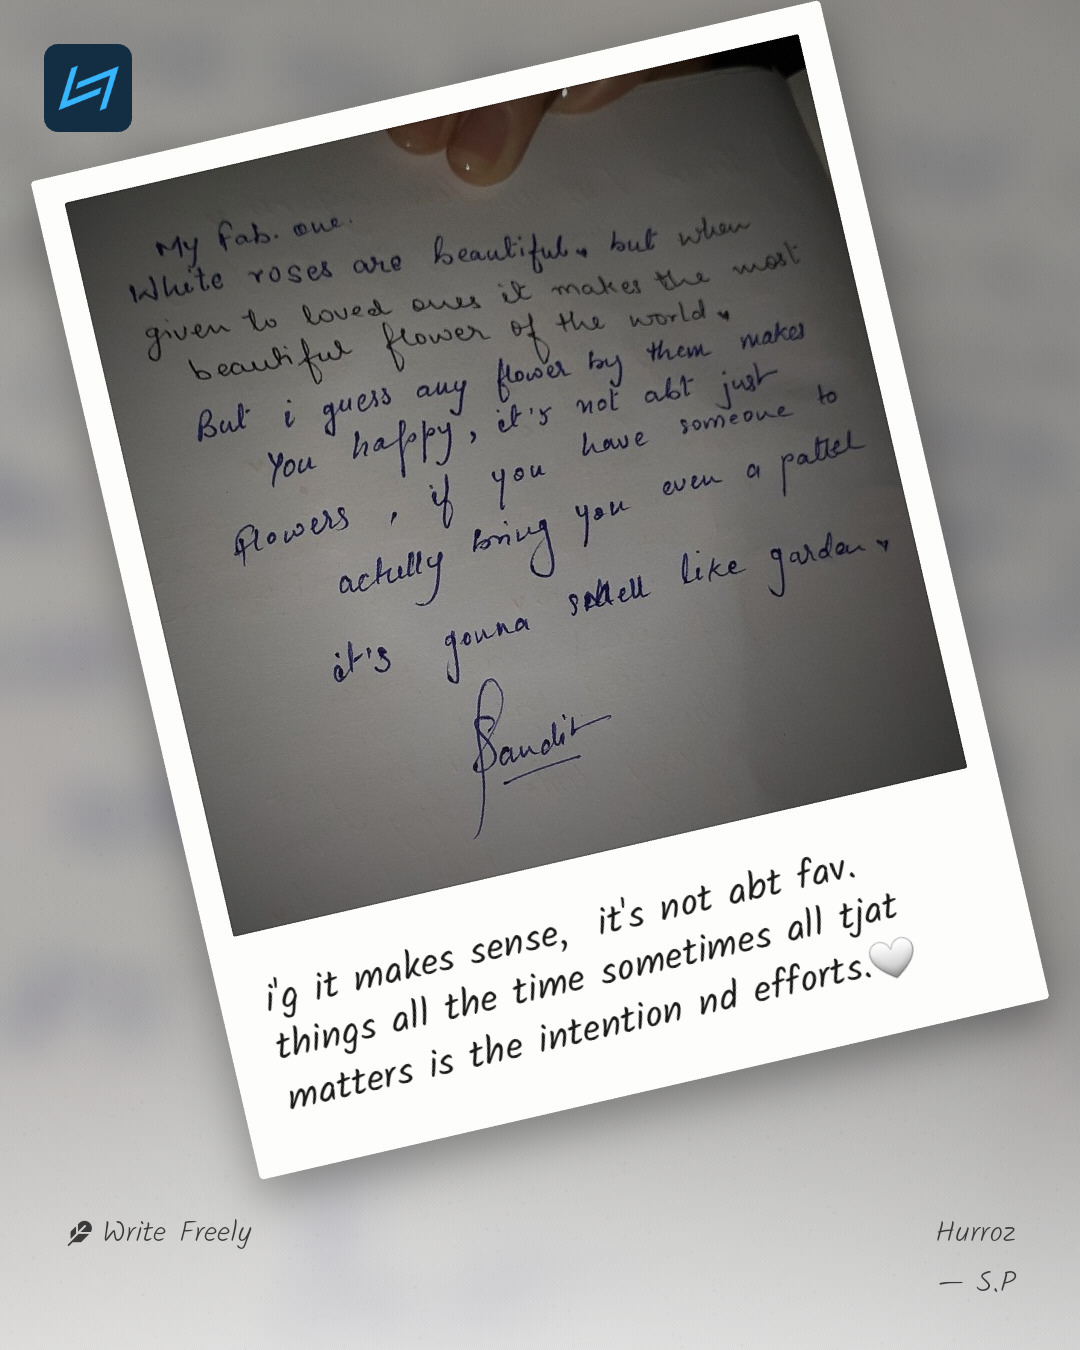 My fab. one.
White roses are beautiful. but when
given to loved ones it makes the most
beautiful flower of the world
But i guess any flower by them makes
You happy, it's not abt just
flowers, if you have someone to
actully bring you even a pattel
it's gonna smell like garden
Pandit
i'g it makes sense, it's not abt fav.
things all the time sometimes all tjat
matters is the intention nd efforts.🤍
Write Freely
Hurroz
— S.P